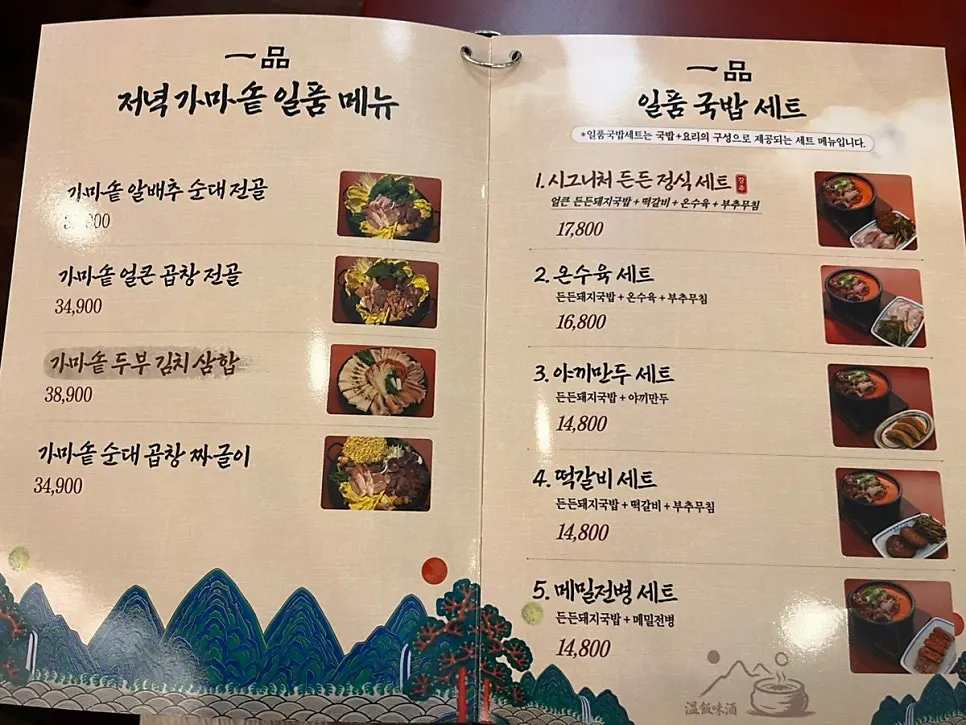 一品
저녁 가마솥 일품 메뉴
가마솥 알배추 순대 전골
가마솥 얼큰 곱창 전골
34,900
가마솥 두부 김치 삼합
38,900
가마솥 순대 곱창 짜글이
34,900
一品
일품 국밥 세트
*일품국밥세트는 국밥+요리의 구성으로 제공되는 세트 메뉴입니다.
1. 시그니처 든든 정식 세트 강추
얼큰 든든돼지국밥 + 떡갈비 + 온수육 + 부추무침
17,800
2. 온수육 세트
든든돼지국밥 + 온수육 + 부추무침
16,800
3. 야끼만두 세트
든든돼지국밥 + 야끼만두
14,800
4. 떡갈비 세트
든든돼지국밥 + 떡갈비 + 부추무침
14,800
5. 메밀전병 세트
든든돼지국밥 + 메밀전병
14,800
温飯味酒